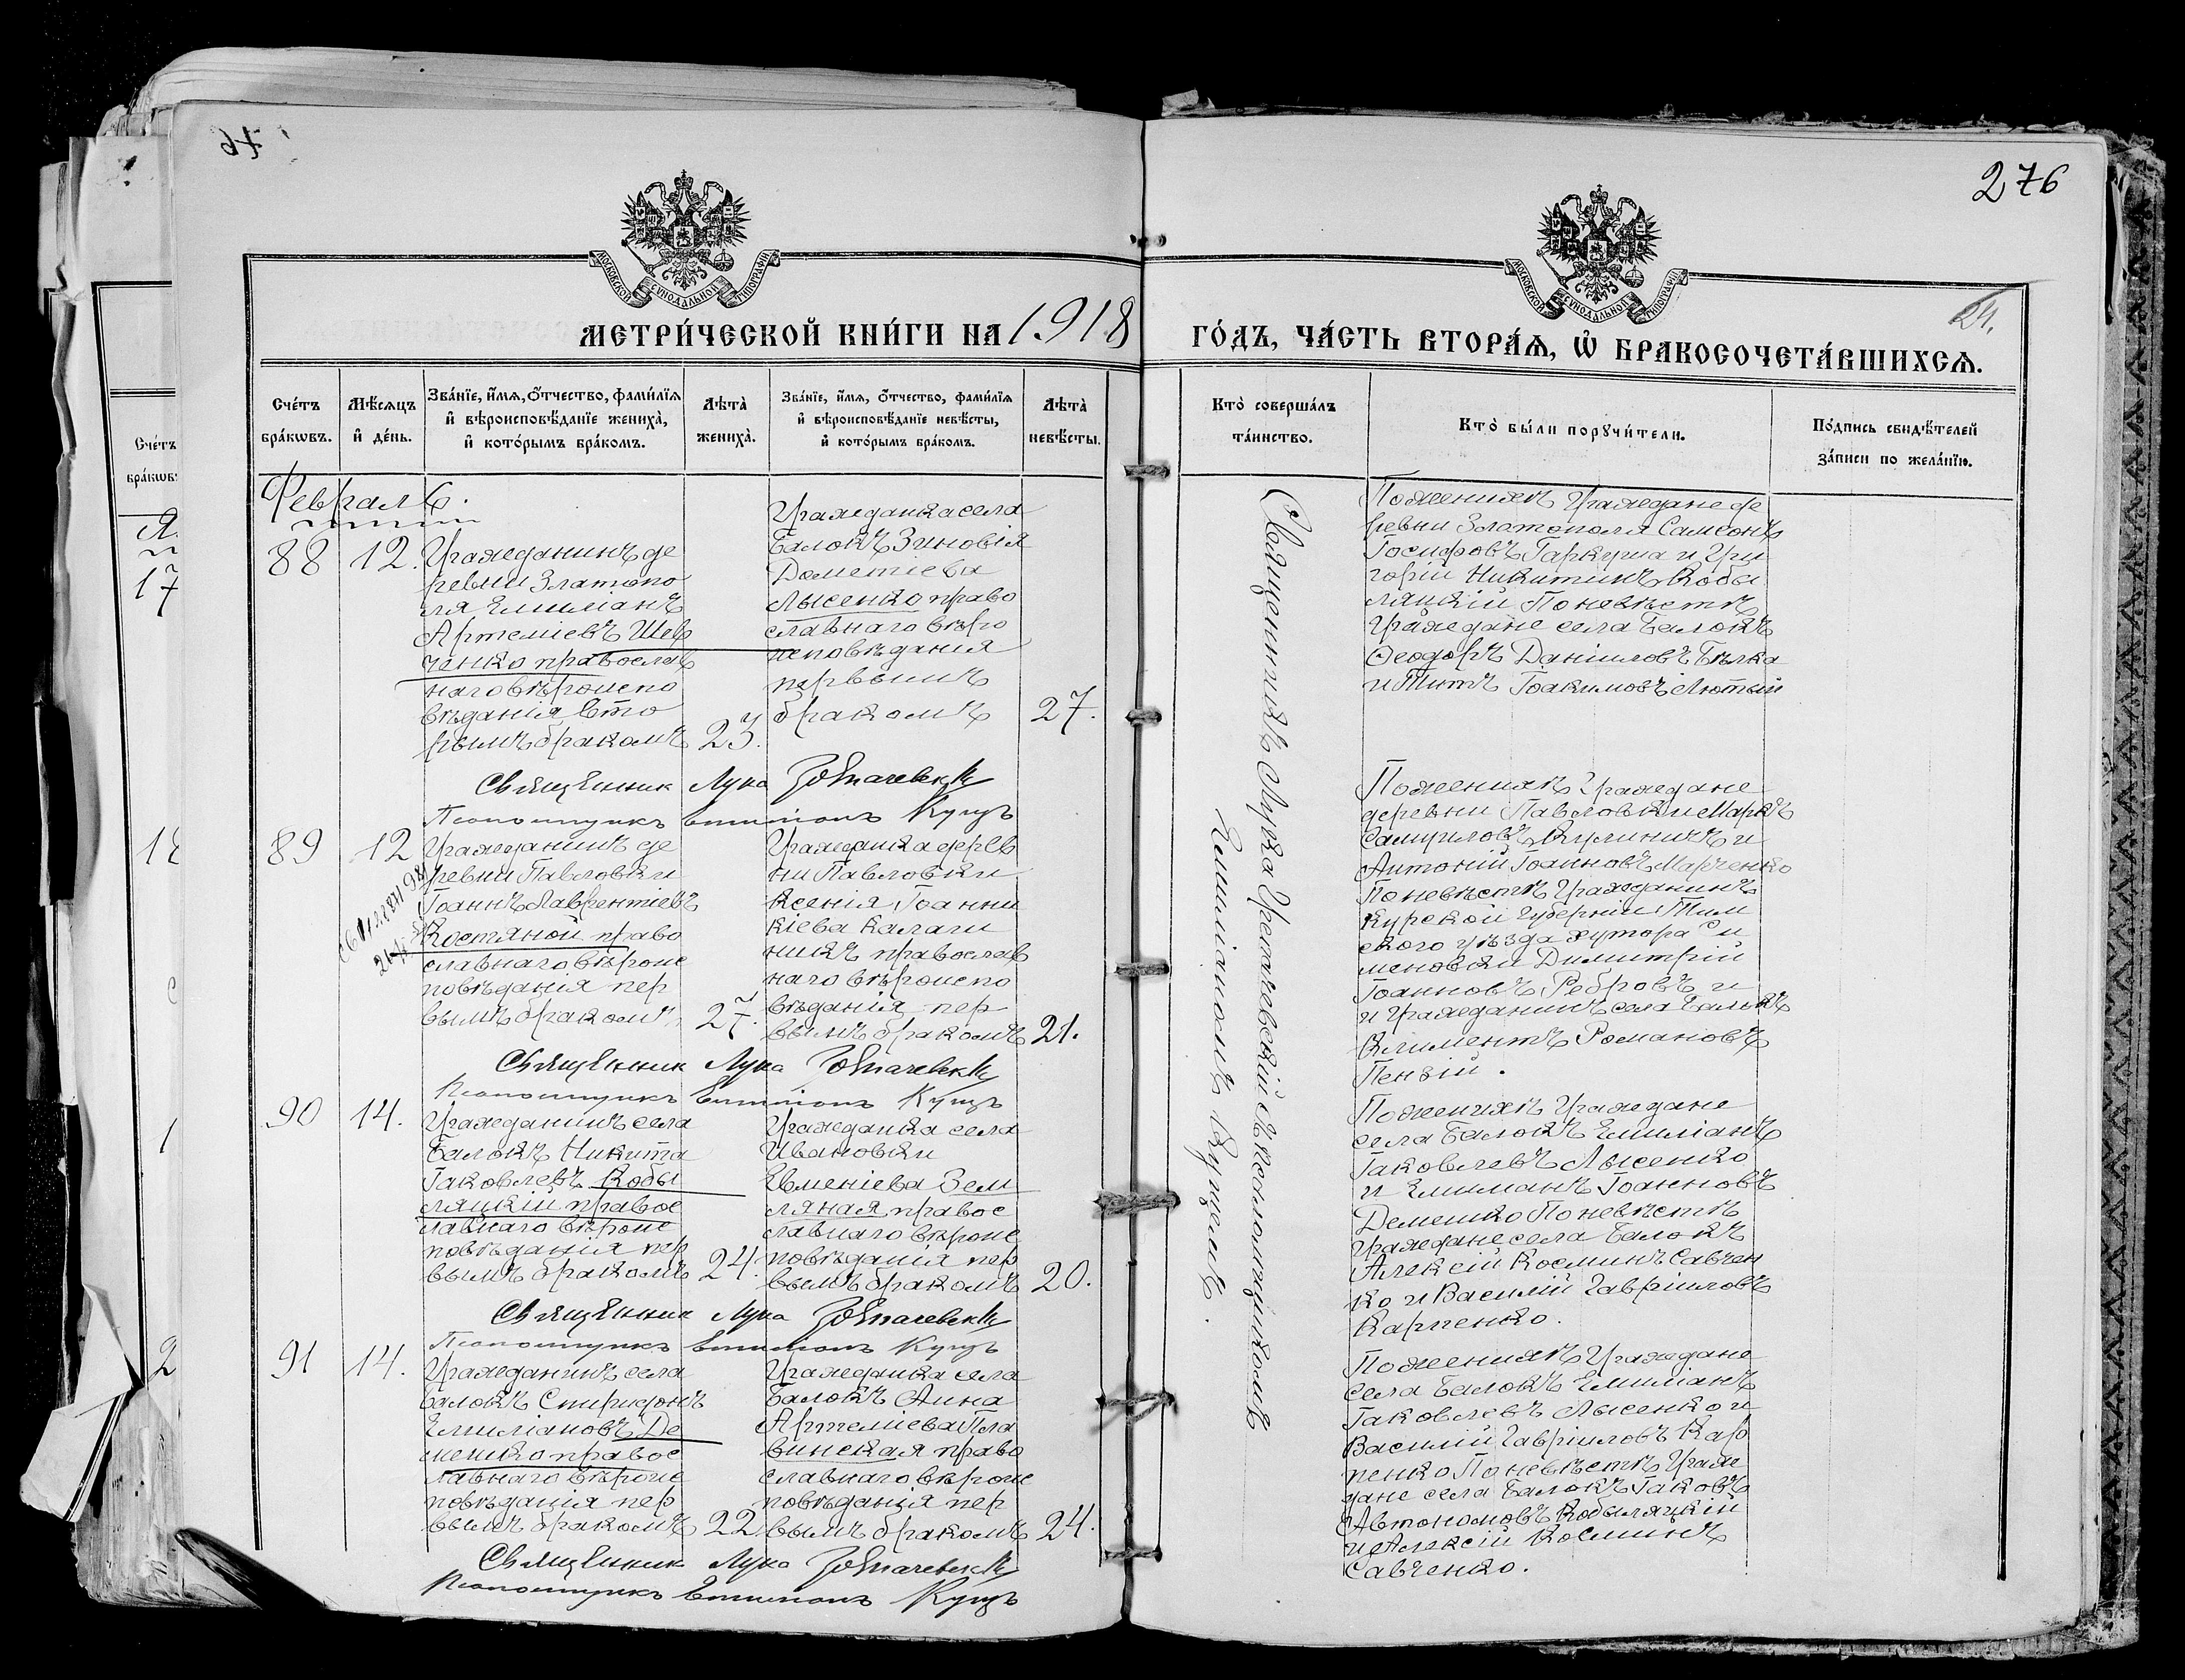 276
24.
МОСКОВСКОЙ СѴНОДАЛЬНОЙ ТИПОГРАФІИ
МОСКОВСКОЙ СѴНОДАЛЬНОЙ ТИПОГРАФІИ
МЕТРИ́ЧЕСКОЙ КНИ́ГИ НА 1918 ГО́ДЪ, ЧА́СТЬ ВТОРА́Ѧ, Ѡ҆ БРАКОСОЧЕТА́ВШИХСѦ.
Сче́тъ бра́кωвъ.
Мѣ́сяцъ и҆ де́нь.
Зва́нїе, и҆́мѧ, о҆́тчество, фами́лїѧ и҆ вѣроисповѣ́данїе жениха̀, и҆ кото́рымъ бра́комъ.
Лѣта̀ жениха̀.
Зва́нїе, и҆́мѧ, о҆́тчество, фами́лїѧ и҆ вѣроисповѣ́данїе невѣ́сты, и҆ кото́рымъ бра́комъ.
Лѣта̀ невѣ́сты.
Кто̀ соверша́лъ та́инство.
Кто̀ бы́ли порꙋчи́тели.
По́дпись свидѣ́телей за́писи по жела́нїю.
Февраль.
88
12.
Гражданинъ де
ревни Златопо
ля Емиліанъ
Артеміевъ Шев
ченко православ
наго вѣроиспо
вѣданія вто
рымъ бракомъ
23.
Гражданка села
Балокъ Зиновія
Дометіева
Лысенко право
славнаго вѣро
исповѣданія
первымъ
бракомъ
27.
По женихѣ Граждане де
ревни Златополя Самсонъ
Іосифовъ Гаркуша и Гри
горій Никитинъ Кобы
ляцкій По невѣстѣ
Граждане села Балокъ
Ѳеодоръ Даніиловъ Бѣлка
и Титъ Іоакимовъ Лютый
Священникъ Лука
Псаломщикъ Куцъ
89
12
Гражданинъ де
ревни Павловки
Іоаннъ Лаврентіевъ
Костяной право
славнаго вѣроис
повѣданія пер
вымъ бракомъ
27.
Гражданка дерев
ни Павловки
Ксенія Іоанни
кіева Калаш
никъ православ
наго вѣроиспо
вѣданія пер
вымъ бракомъ
21.
По женихѣ Граждане
деревни Павловки Маркъ
Самуиловъ Кулиничъ и
Антоній Іоанновъ Марченко
По невѣстѣ Гражданинъ
Курской губерніи Тим
ского уѣзда хутора Се
меновки Димитрій
Іоанновъ Ребровъ и
и Гражданинъ села Балокъ
Климентъ Романовъ
Пензій.
Священник Лука
Псаломщикъ Куцъ
90
14.
Гражданинъ села
Балокъ Никита
Іаковлевъ Кобы
ляцкій правос
лавнаго вѣроис
повѣданія пер
вымъ бракомъ
24.
Гражданка села
Ивановки
Евменіева Зем
ляная правос
лавнаго вѣроис
повѣданія пер
вымъ бракомъ
20.
По женихѣ Граждане
села Балокъ Емиліанъ
Іаковлевъ Лысенко
и Емиліанъ Іоанновъ
Демешко По невѣстѣ
Граждане села Балокъ
Алексій Косминъ Савчен
ко и Василій Гавріиловъ
Карпенко.
Священник Лука
Псаломщикъ Куцъ
91
14.
Гражданинъ села
Балокъ Спиридонъ
Емиліановъ Де
мешко правос
лавнаго вѣроис
повѣданія пер
вымъ бракомъ
22
Гражданка села
Балокъ Анна
Артеміева Пла
винская право
славнаго вѣроис
повѣданія пер
вымъ бракомъ
24.
По женихѣ Граждане
села Балокъ Емиліанъ
Іаковлевъ Лысенко и
Василій Гавріиловъ Кар
пенко По невѣстѣ Граж
дане села Балокъ Іаковъ
Автономовъ Кобыляцкій
и Алексій Косминъ
Савченко.
Священник Лука
Псаломщикъ Куцъ
Священникъ Лука съ псаломщикомъ
Емиліаномъ Куцемъ.
Сче́тъ
бра́кωвъ
17